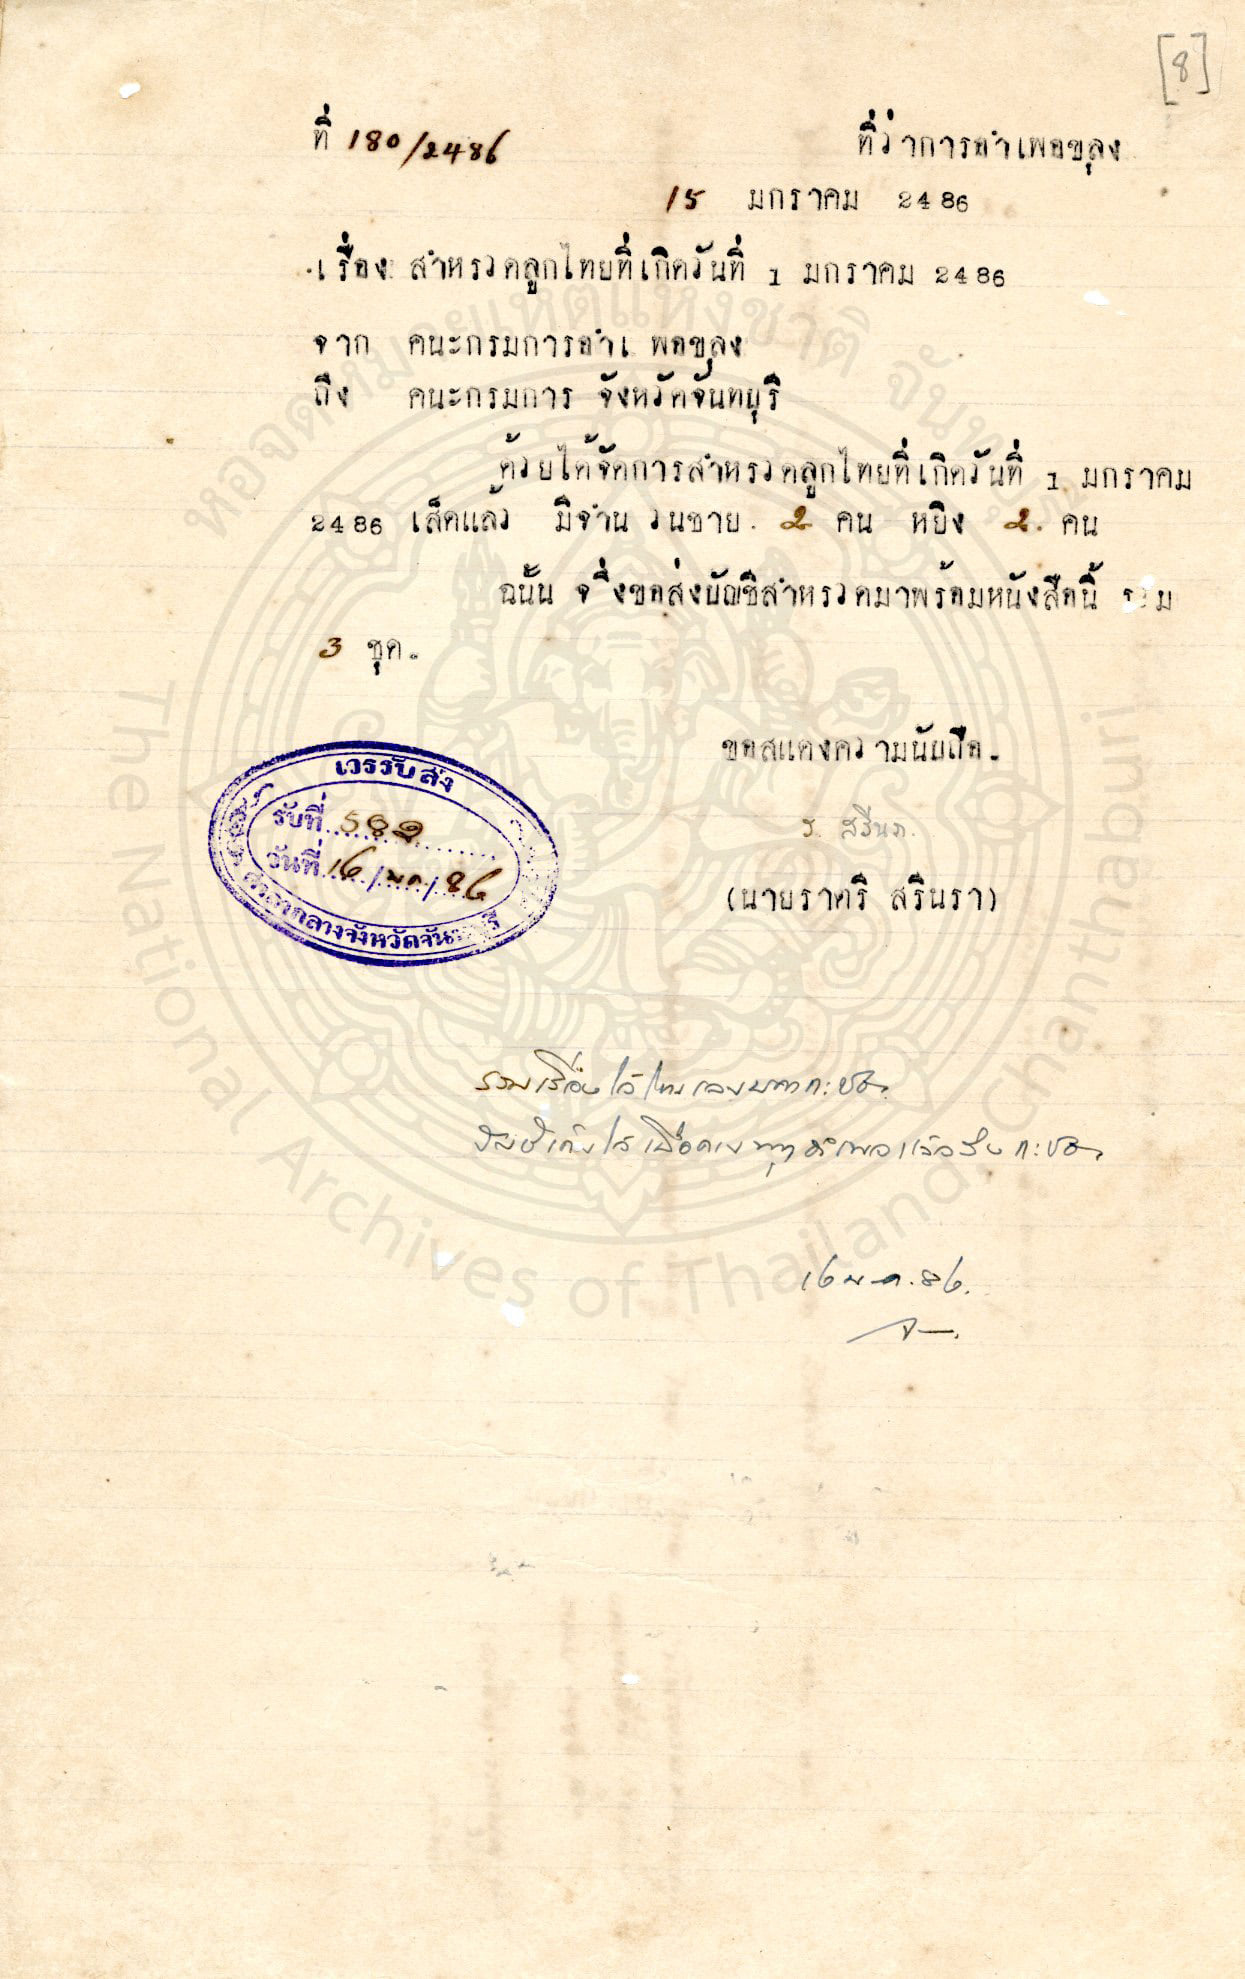 [8]
ที่ 180/2486 ที่ว่าการอำเพอขลุง
15 มกราคม 2486
เรื่อง สำหรวดลูกไทยที่เกิดวันที่ 1 มกราคม 2486
จาก คนะกรมการอำเพอขลุง
ถึง คนะกรมการ จังหวัดจันทบุรี
ด้วยได้จัดการสำหรวดลูกไทยที่เกิดวันที่ 1 มกราคม
2486 เส็ดแล้ว มีจำนวนชาย 2 คน หยิง 2 คน
ฉนั้น จึ่งขอส่งบัญชีสำหรวดมาพร้อมหนังสือนี้ รวม
3 ชุด.
ขอสแดงความนับถือ.
ร. สรีนรา
(นายราตรี สรีนรา)
เวรรับส่ง
รับที่ 582
วันที่ 16/มค/86
ศาลากลางจังหวัดจันทบุรี
16 ม.ค. 86.
หอจดหมายเหตุแห่งชาติ จันทบุรี
The National Archives of Thailand, Chanthaburi